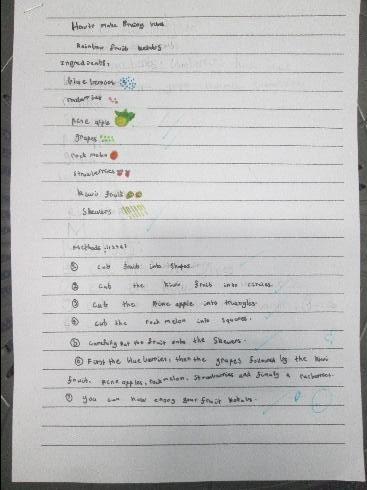 How to make Fruity kebabs
Rainbow fruit kebabs
Ingredients:
blue berries
rasberries
Pine apple
grapes
rock melon
strawberries
kiwi fruit
Skewers
Methods
① Cut fruit into shapes.
② Cut the kiwi fruit into circles.
③ Cut the Pine apple into triangles.
④ cut the rock melon into squares.
⑤ Carefully Put the fruit onto the Skewers.
⑥ First the blue berries, then the grapes followed by the kiwi
fruit, Pine apples, rock melon, Strawberries and finaly a rasberries.
⑦ you can now enjoy your fruit kebabs.